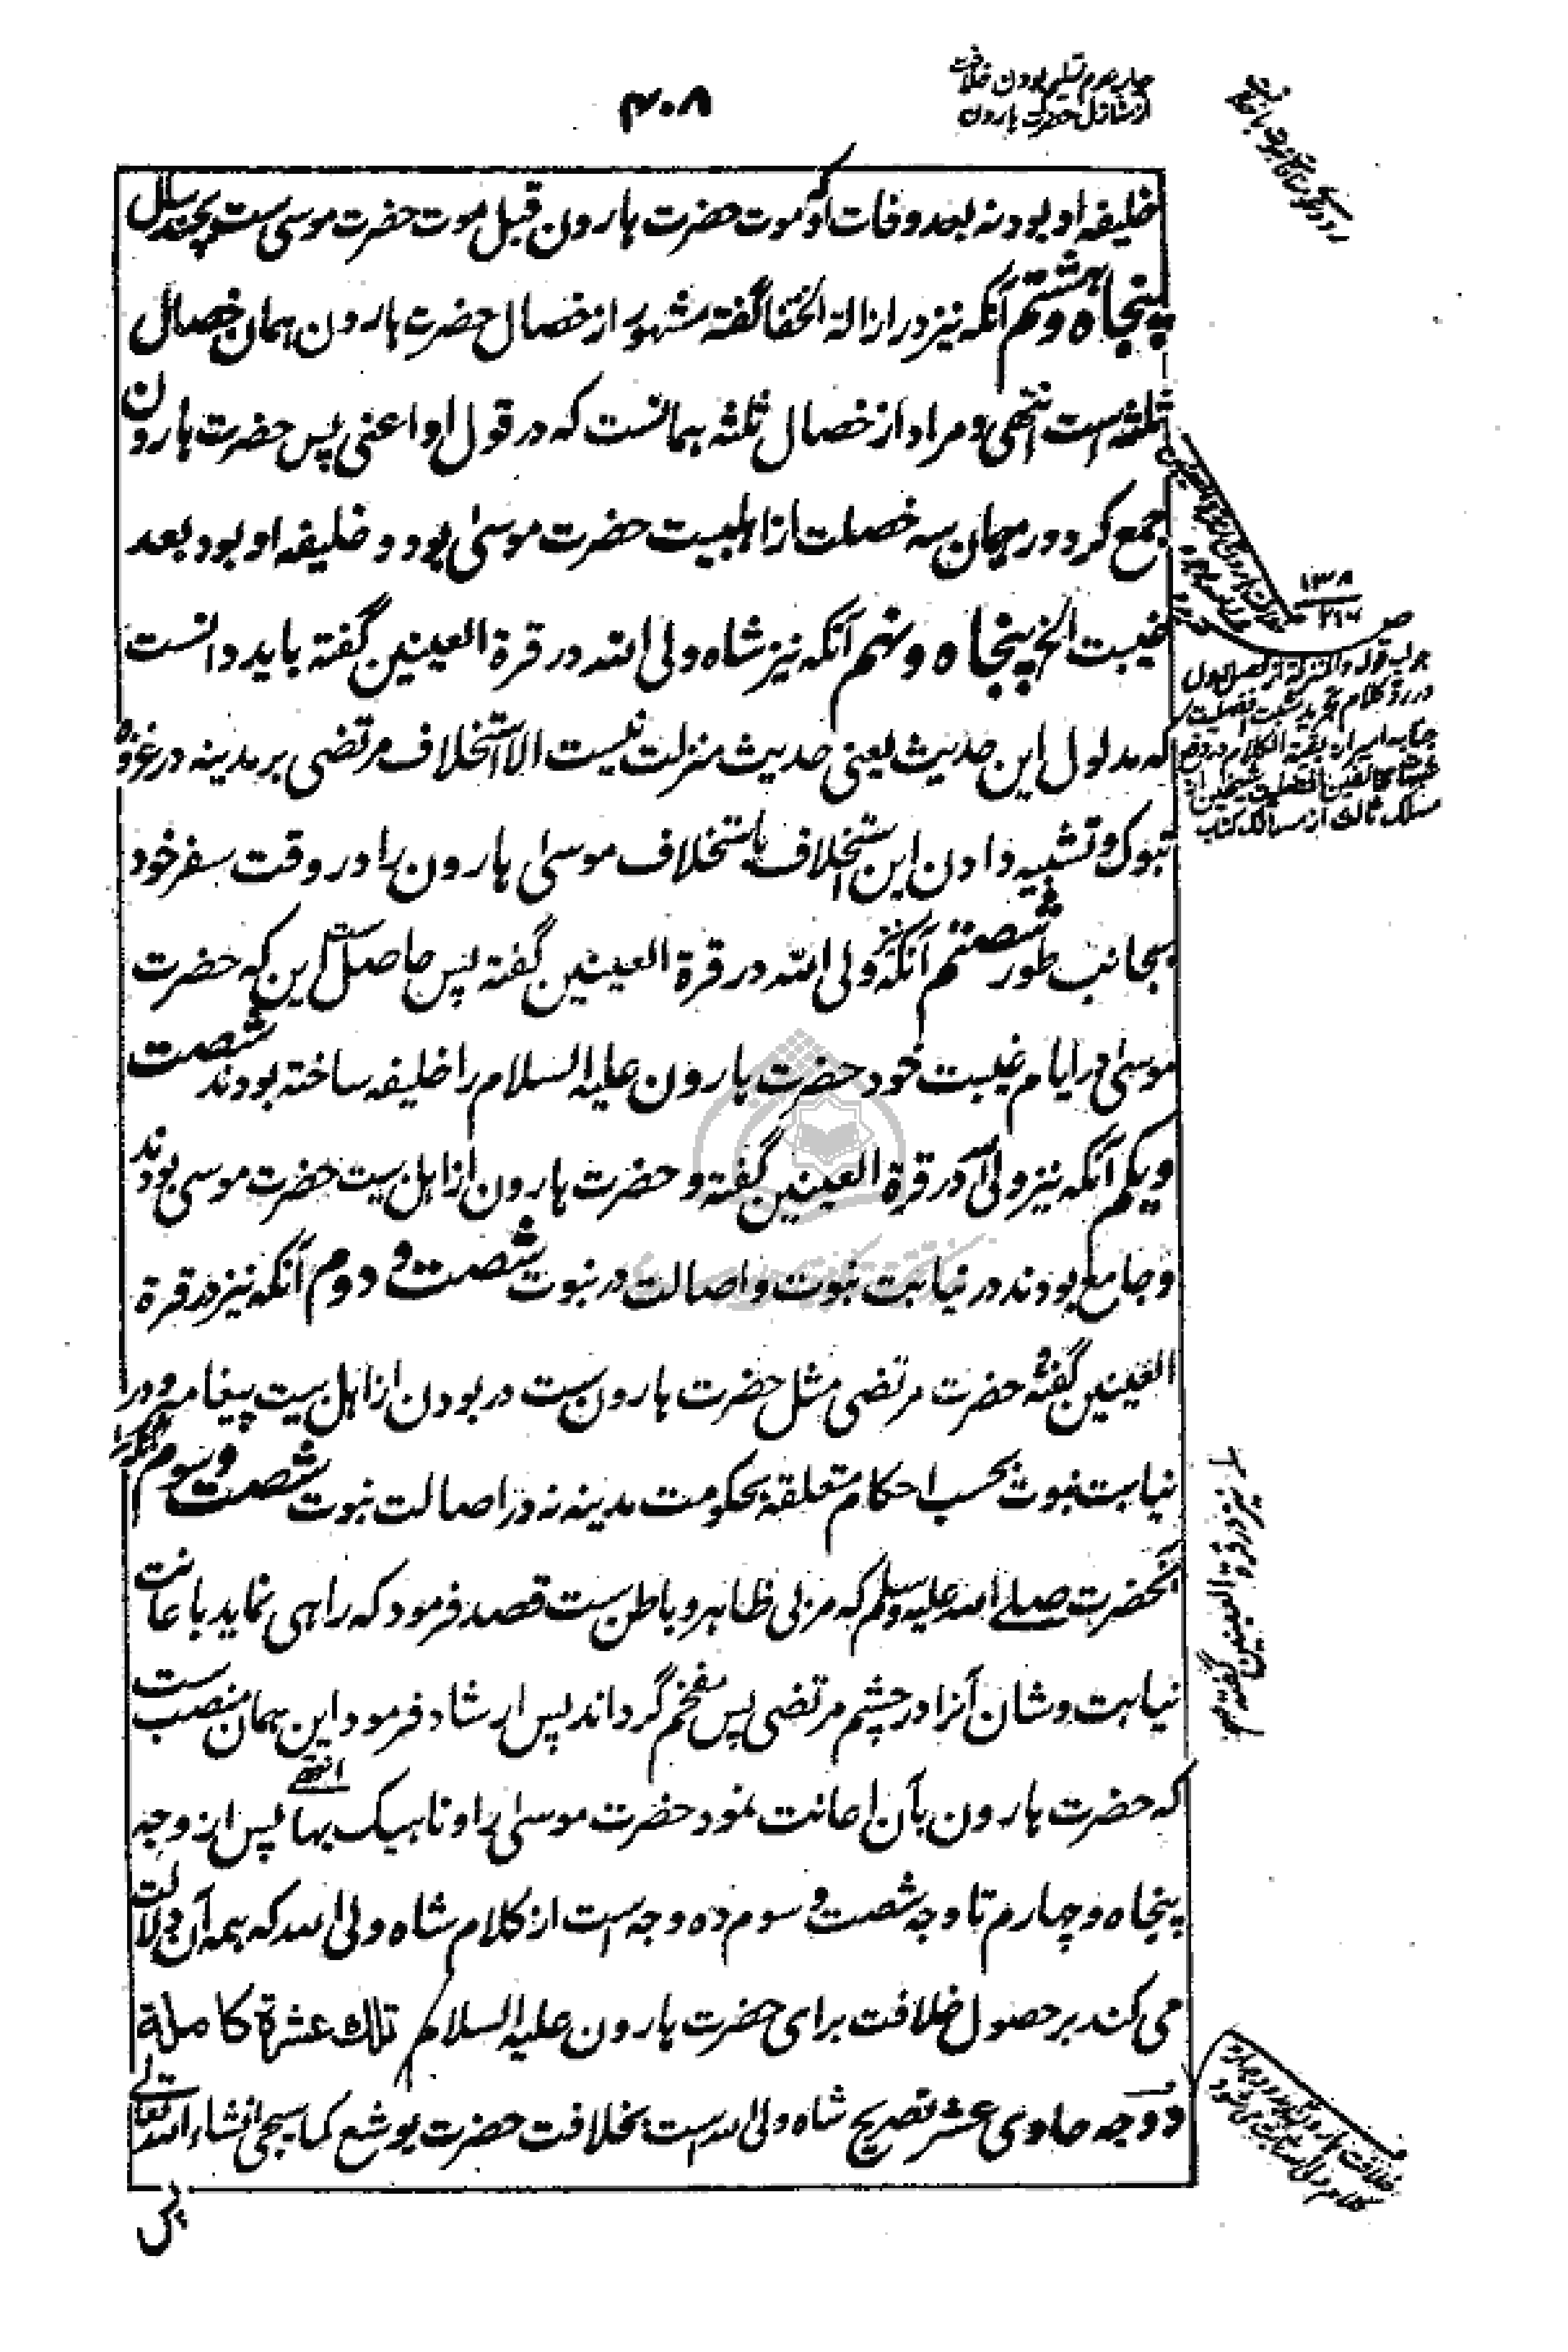 ۴۰۸
خلیفه او بود نه بعد وفات او که موت حضرت هارون قبل موت حضرت موسی ست بچند سال
پنجاه و هشتم آنکه نیز در ازالة الخفا گفته مشهور از خصال حضرت هارون همان خصال
ثلثه است انتهی و مراد از خصال ثلثه همانست که در قول او اعنی پس حضرت هارون
جمع کرد در میان سه خصلت از اهلبیت حضرت موسیٰ بود و خلیفه او بود بعد
غیبت الخ پنجاه و نهم آنکه نیز شاه ولی الله در قرة العینین گفته باید دانست
که مدلول این حدیث یعنی حدیث منزلت نیست الا استخلاف مرتضی بر مدینه در غزوه
تبوک و تشبیه دادن این استخلاف باستخلاف موسیٰ هارون را در وقت سفر خود
بجانب طور شصتم آنکه نیز ولی الله در قرة العینین گفته پس حاصل آنست این که حضرت
موسیٰ در ایام غیبت خود حضرت هارون علیه السلام را خلیفه ساخته بودند شصت
و یکم آنکه نیز ولی الله در قرة العینین گفته و حضرت هارون از اهل بیت حضرت موسی بودند
و جامع بودند در نیابت نبوت و اصالت در نبوت شصت و دوم آنکه نیز در قرة
العینین گفته و حضرت مرتضی مثل حضرت هارون ست در بودن از اهل بیت پیغامبر و در
نیابت نبوت بحسب احکام متعلقه بحکومت مدینه نه در اصالت نبوت شصت و سوم آنکه
نیز در قرة العینین گفته
آنحضرت صلے الله علیه وسلم که مزلی ظاهر و باطن ست قصد فرمود که راهی نماید باعانت
نیابت و شان آنرا در چشم مرتضی پس مفخم گرداند پس ارشاد فرمود این همان منصب ست
که حضرت هارون بآن اعانت نمود حضرت موسیٰ را و ناهیک بها انتهے پس از وجه
پنجاه و چهارم تا وجه شصت و سوم ده وجه است از کلام شاه ولی الله که همه آن دلالت
می کند بر حصول خلافت برای حضرت هارون علیه السلام تلك عشرة كاملة
و وجه حاوی عشر تصریح شاه ولی الله است بخلافت حضرت یوشع کما سیجی انشاء الله تعالے
پس